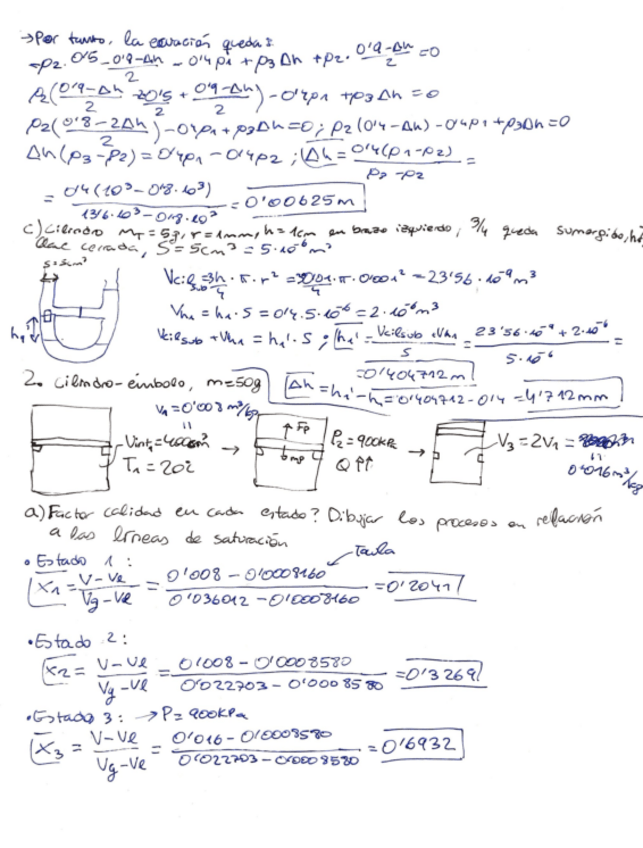 →Por tanto, la ecuación queda:
-ρ2·0'5-(0'9-Δh)/2 - 0'4ρ1 + ρ3Δh + ρ2·(0'9-Δh)/2 = 0
ρ2((0'9-Δh)/2 - 2·0'5/2 + (0'9-Δh)/2) - 0'4ρ1 + ρ3Δh = 0
ρ2((0'8-2Δh)/2) - 0'4ρ1 + ρ3Δh = 0; ρ2(0'4-Δh) - 0'4ρ1 + ρ3Δh = 0
Δh(ρ3-ρ2) = 0'4ρ1 - 0'4ρ2; Δh = 0'4(ρ1-ρ2)/(ρ3-ρ2) =
= 0'4(10³-0'8·10³)/(13'6·10³-0'8·10³) = 0'00625m
c) Cilindro mT = 5g, r = 1mm, h = 1cm en brazo izquierdo, 3/4 queda sumergido,
llave cerrada, S = 5cm² = 5·10⁻⁶m²
S=5cm²
h1'
Vcil sub = 3h/4·π·r² = 3·0'01/4·π·0'001² = 23'56·10⁻⁹m³
Vh1 = h1·S = 0'4·5·10⁻⁶ = 2·10⁻⁶m³
Vcil sub + Vh1 = h1'·S; h1' = (Vcil sub + Vh1)/S = (23'56·10⁻⁹ + 2·10⁻⁶)/(5·10⁻⁶) =
= 0'404712m
Δh = h1' - h1 = 0'404712 - 0'4 = 4'712mm
2. Cilindro-émbolo, m=50g
V1 = 0'008m³/kg
Vint1 = 400cm³
T1 = 20ºC
→
Fp
mg
P2 = 900kPa
Q↑↑
→
V3 = 2V1 =
0'016m³/kg
a) Factor calidad en cada estado? Dibujar los procesos en relación
a las líneas de saturación
• Estado 1:
Taula
X1 = (V-Vl)/(Vg-Vl) = (0'008-0'0008160)/(0'036012-0'0008160) = 0'2041
•Estado 2:
X2 = (V-Vl)/(Vg-Vl) = (0'008-0'0008580)/(0'022703-0'0008580) = 0'3269
•Estado 3: → P= 900kPa
X3 = (V-Vl)/(Vg-Vl) = (0'016-0'0008580)/(0'022703-0'0008580) = 0'6932